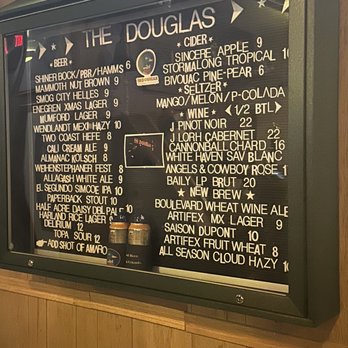 THE DOUGLAS
BEER
SHINER BOCK/PBR/HAMMS 6
MAMMOTH NUT BROWN 8
SMOG CITY HELLES 9
ENEGREN XMAS LAGER 9
MUMFORD LAGER 9
WENDLANDT MEXI HAZY 10
TWO COAST HEFE 8
CALI CREAM ALE 9
ALMANAC KOLSCH 8
WEIHENSTEPHANER FEST 8
ALLAGASH WHITE ALE 9
EL SEGUNDO SIMCOE IPA 10
PAPERBACK STOUT 10
HALF ACRE DAISY DBL PALE
HARLAND RICE LAGER 8
DELIRIUM 12
TOPA SOUR 12
ADD SHOT OF AMARO
CIDER
SINCERE APPLE 9
STORMALONG TROPICAL 10
BIVOUAC PINE-PEAR 6
SELTZER
MANGO/MELON/P-COLADA
WINE 1/2 BTL
J PINOT NOIR 22
J LOHR CABERNET 22
CANNONBALL CHARD 16
WHITE HAVEN SAV BLANC
ANGELS & COWBOY ROSE
BAILY J.P BRUT 20
NEW BREW
BOULEVARD WHEAT WINE ALE
ARTIFEX MX LAGER 9
SAISON DUPONT 10
ARTIFEX FRUIT WHEAT 8
ALL SEASON CLOUD HAZY 10